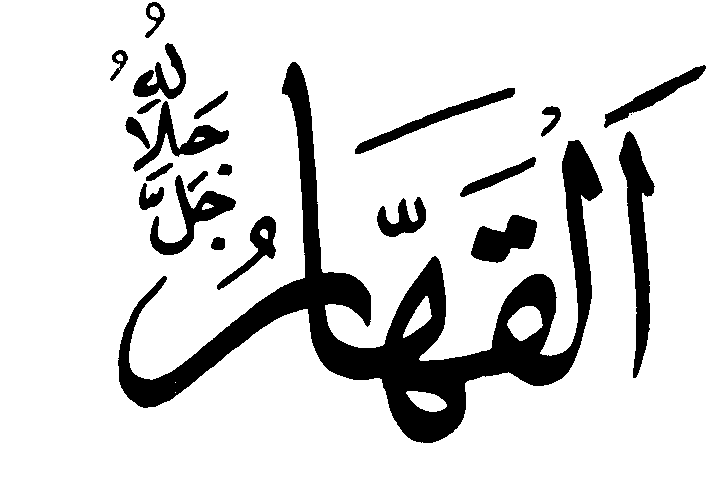 اَلْقَهَّارُ
جَلَّ جَلَالُهُ